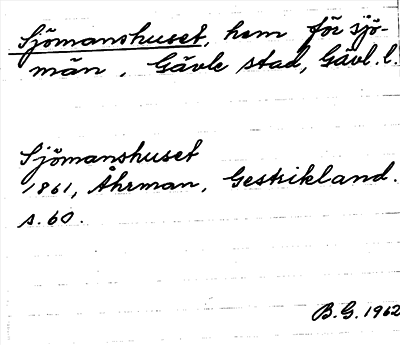 Sjömanshuset, hem för sjö-
män, Gävle stad, Gävl. l.
Sjömanshuset
1861, Åhrman, Gestrikland.
s. 60.
B.G. 1962